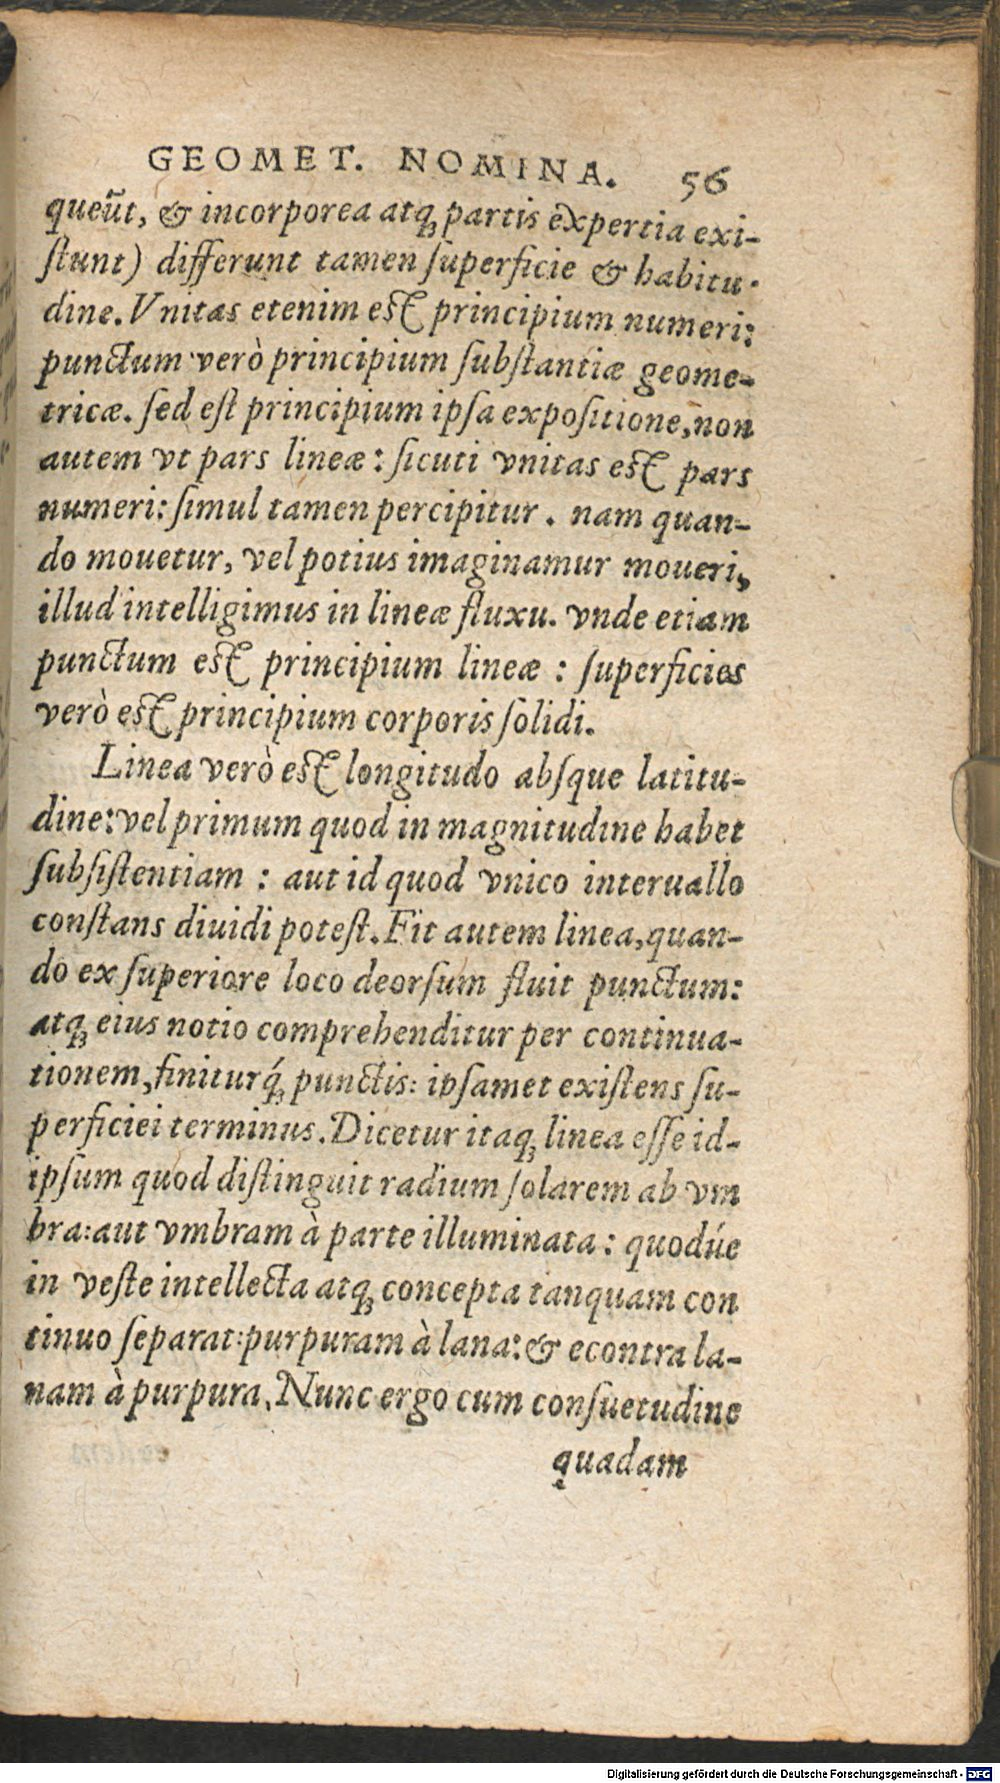 GEOMET. NOMINA. 56
queūt, & incorporea atq; partis expertia exi-
ſtunt) differunt tamen ſuperficie & habitu-
dine. Vnitas etenim eſt principium numeri:
punctum verò principium ſubſtantiæ geome-
tricæ. ſed eſt principium ipſa expoſitione, non
autem vt pars lineæ: ſicuti vnitas eſt pars
numeri: ſimul tamen percipitur. nam quan-
do mouetur, vel potius imaginamur moueri,
illud intelligimus in lineæ fluxu. vnde etiam
punctum eſt principium lineæ: ſuperficies
verò eſt principium corporis ſolidi.
Linea verò eſt longitudo abſque latitu-
dine: vel primum quod in magnitudine habet
ſubſiſtentiam: aut id quod vnico interuallo
conſtans diuidi poteſt. Fit autem linea, quan-
do ex ſuperiore loco deorſum fluit punctum:
atq; eius notio comprehenditur per continua-
tionem, finiturq́; punctis: ipſamet exiſtens ſu-
perficiei terminus. Dicetur itaq; linea eſſe id-
ipſum quod diſtinguit radium ſolarem ab vm
bra: aut vmbram à parte illuminata: quodúe
in veſte intellecta atq; concepta tanquam con
tinuo ſeparat: purpuram à lana: & econtra la-
nam à purpura. Nunc ergo cum conſuetudine
quadam
Digitalisierung gefördert durch die Deutsche Forschungsgemeinschaft - DFG